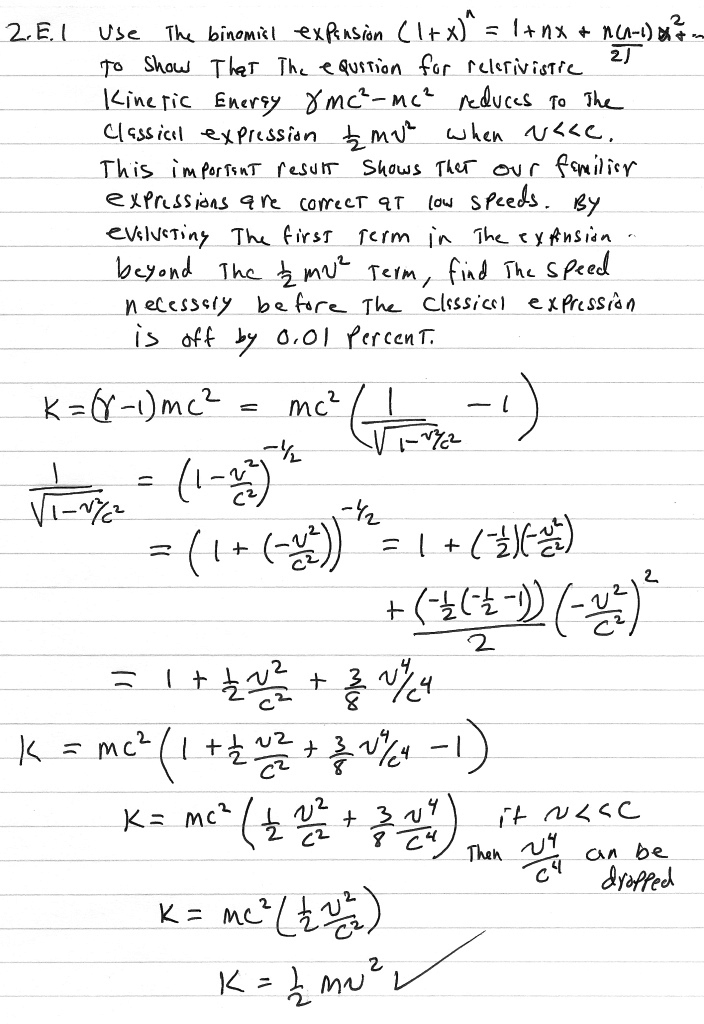 2.E.1 Use The binomial expansion (1+x)^n = 1+nx + n(n-1)/2! x^2 + ...
To Show That The equation for relativistic
Kinetic Energy γmc²-mc² reduces to The
Classical expression ½ mv² when v<<c.
This important result shows that our familiar
expressions are correct at low speeds. By
evaluating The first term in The expansion
beyond The ½ mv² Term, find The speed
necessary before The classical expression
is off by 0.01 Percent.
K = (γ-1)mc² = mc² (1/√(1-v²/c²) - 1)
1/√(1-v²/c²) = (1-v²/c²)^(-1/2)
= (1 + (-v²/c²))^(-1/2) = 1 + (-1/2)(-v²/c²)
+ (-1/2(-1/2 -1))/2 (-v²/c²)²
= 1 + 1/2 v²/c² + 3/8 v⁴/c⁴
K = mc² (1 + 1/2 v²/c² + 3/8 v⁴/c⁴ - 1)
K = mc² (1/2 v²/c² + 3/8 v⁴/c⁴) if v<<c
Then v⁴/c⁴ can be
dropped
K = mc² (1/2 v²/c²)
K = ½ mv² ✓